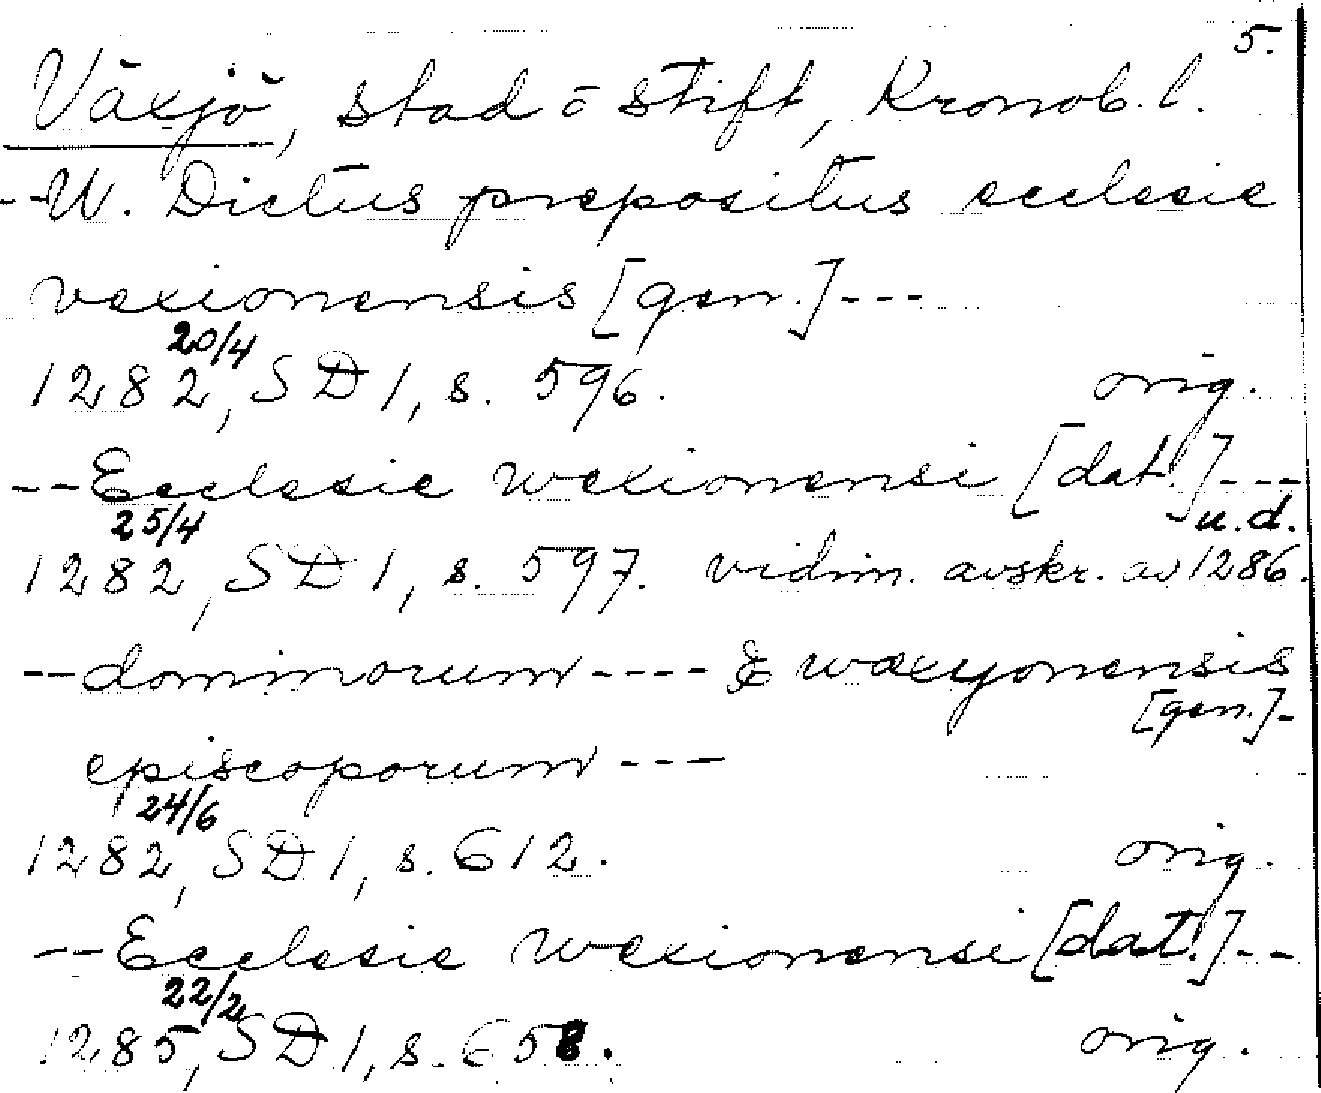 5.
Växjö, stad o stift, Kronob. l.
--W. Dictus prepositus ecclesie
vexionensis [gen.]---
20/4
1282, SD 1, s. 596. orig.
--Ecclesie wexionensi [dat.]---
25/4 u.d.
1282, SD 1, s. 597. vidim. avskr. av 1286.
--dominorum---- & wæxyonensis
[gen.]-
episcoporum---
24/6
1282, SD 1, s. 612. orig.
--Ecclesie wexionensi [dat.]--
22/2
1285, SD 1, s. 658. orig.